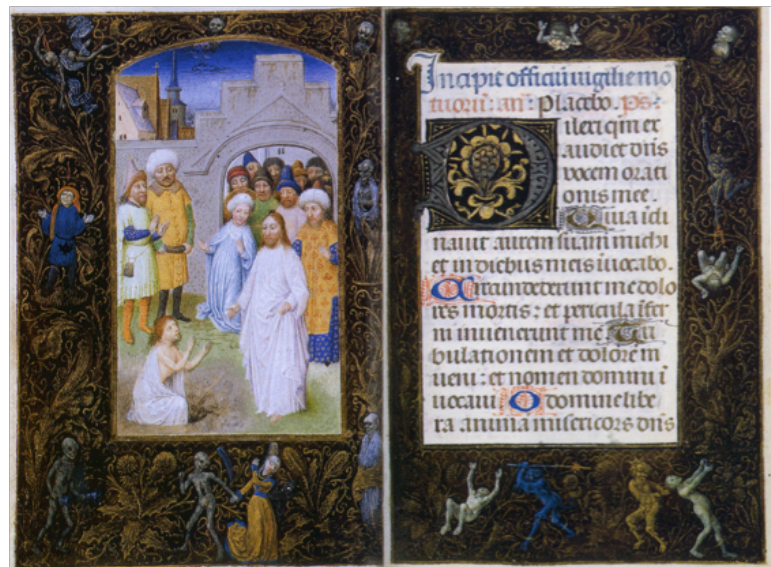 Incipit officiū vigilie mo
tuorū: añ: Placebo. Ps:
Dilexi qm̄ ex
audiet dn̄s
vocem orati
onis mee.
Quia īcli
navit aurem suam michi
et in diebus meis īvocabo.
Circundederunt me dolo
res mortis: et pericula īfer
ni invenerunt me Tri
bulationem et dolorē in
veni: et nomen domini ī
vocavi O domine libe
ra anima misericors dn̄s